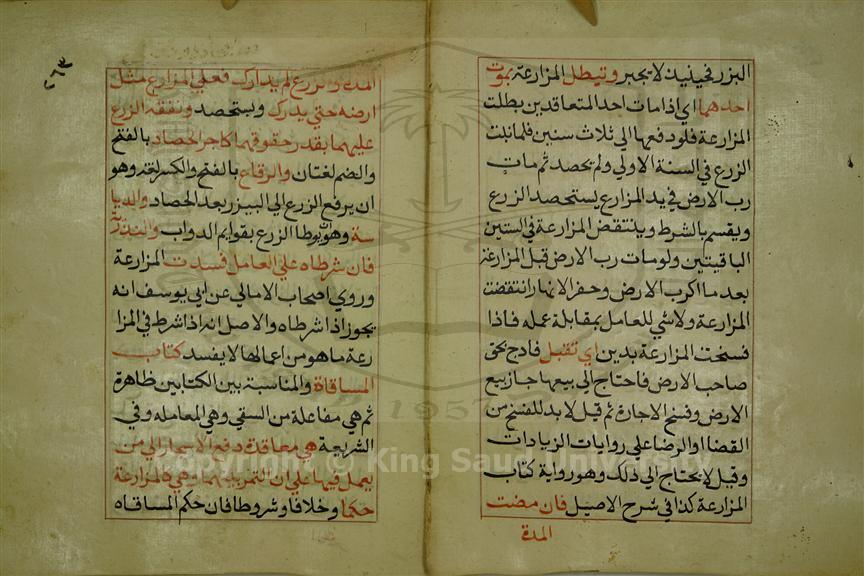 البزر فحينيذ لا يجبر وتبطل المزارعة بموت
احدهما اي اذا مات احد المتعاقدين بطلت
المزارعة فلو دفعها الي ثلاث سنين فلما نبت
الزرع في السنة الاولي ولم يحصد ثم مات
رب الارض في يد المزارع يستحصد الزرع
ويقسم بالشرط وينتقض المزارعة في السنتين
الباقيتين ولو مات رب الارض قبل المزارعة
بعد ما اكرب الارض وحفر الانهار انتقضت
المزارعة ولا شي للعامل بمقابلة عمله فاذا
فسخت المزارعة بدين اي ثقيل فادح لحق
صاحب الارض فاحتاج الي بيعها جاز بيع
الارض وفسخ الاجارة ثم قيل لا بد للفسخ من
القضا او الرضا علي روايات الزيادات
وقيل لا يحتاج الي ذلك وهو رواية كتاب
المزارعة كذا في شرح الاصيل فان مضت
المدة
٢٦٣
المدة والزرع لم يدارك فعلي المزارع مثل
ارضه حتي يدرك ويستحصد ونفقة الزرع
عليهما بقدر حقوقهما كاجر الحصاد بالفتح
والضم لغتان والرقاع بالفتح والكسر لغة وهو
ان يرفع الزرع الي البيزر بعد الحصاد والديا
سة وهو يوطا الزرع بقوايم الدواب والتذرية
فان شرطاه علي العامل فسدت المزارعة
وروي اصحاب الامالي عن ابي يوسف انه
يجوز اذا شرطاه والاصل انه اذا شرط في المزا
رعة ما هو من اعمالها لا يفسد كتاب
المساقاة والمناسبة بين الكتابين ظاهرة
ثم هي مفاعلة من السقي وهي المعامله وفي
الشريعة هي معاقدة دفع الاشجار الي من
يعمل فيها علي ان الثمر بينهما وهي كالمزارعة
حكما وخلافا وشروطا فان حكم المساقاه
Copyright © King Saud University
1957